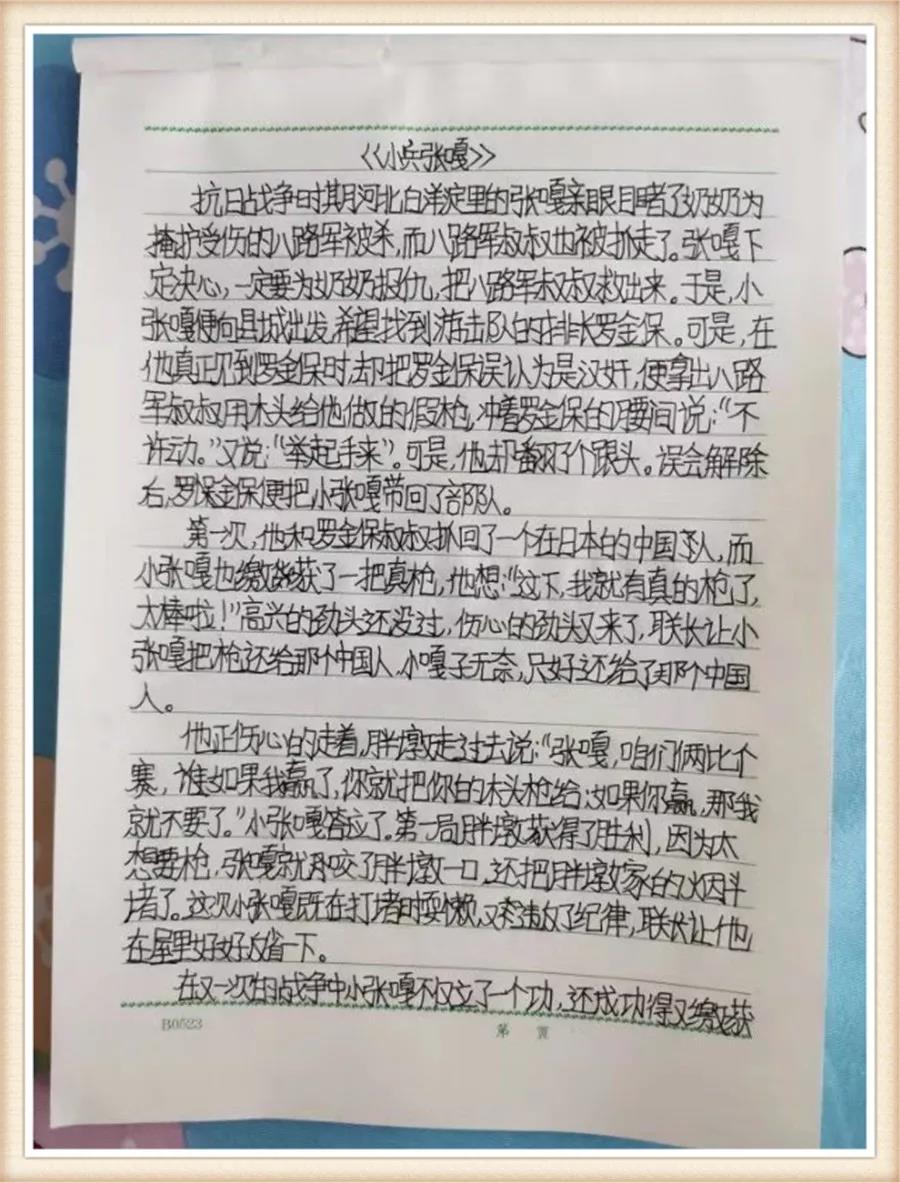 《小兵张嘎》
抗日战争时期河北白洋淀里的张嘎亲眼目睹了奶奶为
掩护受伤的八路军被杀,而八路军叔叔也被抓走了。张嘎下
定决心,一定要为奶奶报仇,把八路军叔叔救出来。于是,小
张嘎便向县城出发,希望找到游击队的排长罗金保。可是,在
他真正见到罗金保时,却把罗金保误认为是汉奸,便拿出八路
军叔叔用木头给他做的假枪,冲着罗金保的腰间说:“不
许动。”又说:“举起手来”。可是,他却翻了个跟头。误会解除
右,罗保金保便把小张嘎带回了部队。
第一次,他和罗金保叔叔抓回了一个在日本的中国军人,而
小张嘎也缴获了一把真枪,他想:“这下,我就有真的枪了,
太棒啦!”高兴的劲头还没过,伤心的劲头又来了,联长让小
张嘎把枪还给那个中国人,小嘎子无奈,只好还给了那个中国
人。
他正伤心的走着,胖墩走过去说:“张嘎,咱们俩比个
赛,谁如果我赢了,你就把你的木头枪给;如果你赢,那我
就不要了。”小张嘎答应了。第一局胖墩获得了胜利,因为太
想要枪,张嘎就咬了胖墩一口,还把胖墩家的烟斗
堵了。这次小张嘎既在打堵时耍懒,又违放了纪律,联长让他
在屋里好好反省一下。
在又一次的战争中小张嘎不仅立了一个功,还成功得又缴获
B0523 第 页